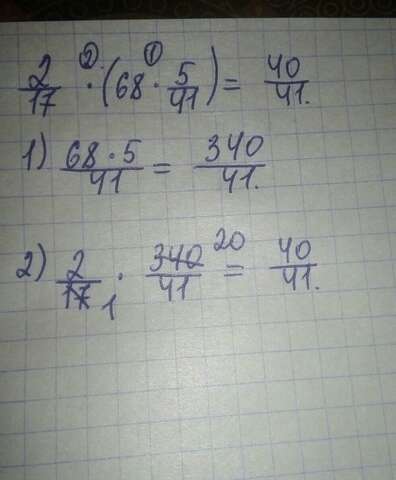 ② ①
2/17 · (68 · 5/41) = 40/41.
1) 68·5/41 = 340/41.
2) 2/17 1 · 340/41 20 = 40/41.